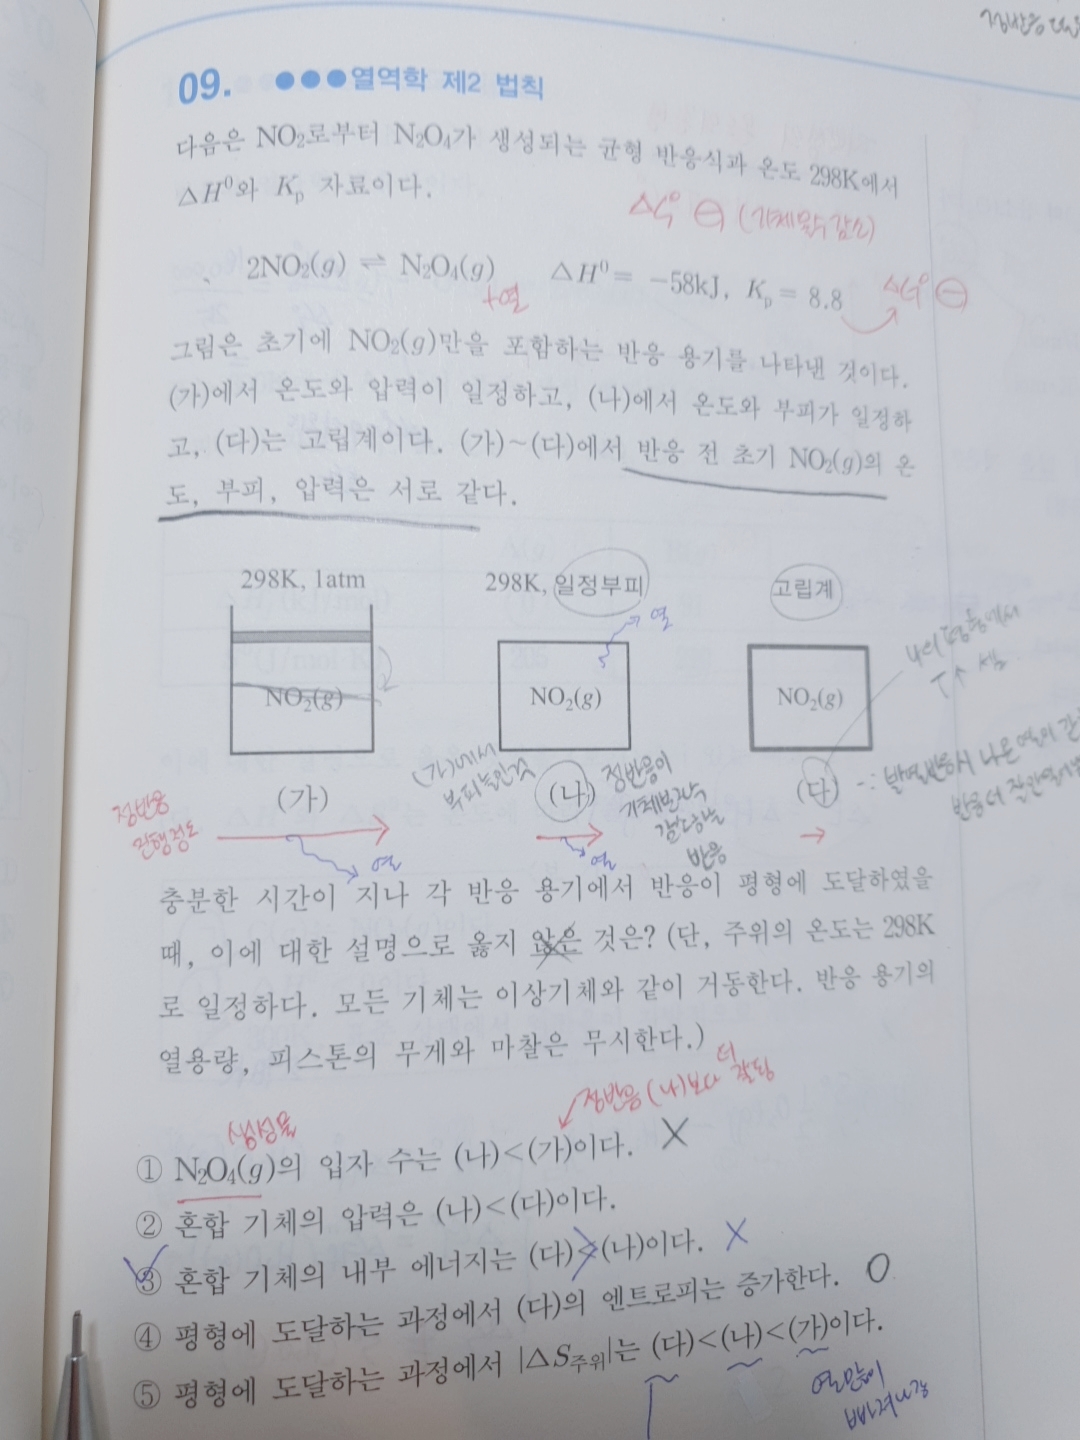 09. ●●●열역학 제2 법칙
다음은 NO₂로부터 N₂O₄가 생성되는 균형 반응식과 온도 298K에서
△H⁰와 Kₚ 자료이다.
△G° ⊖ (기체몰수감소)
2NO₂(g) ⇌ N₂O₄(g) △H⁰= −58kJ, Kₚ = 8.8
+열
△G° ⊖
그림은 초기에 NO₂(g)만을 포함하는 반응 용기를 나타낸 것이다.
(가)에서 온도와 압력이 일정하고, (나)에서 온도와 부피가 일정하
고, (다)는 고립계이다. (가)~(다)에서 반응 전 초기 NO₂(g)의 온
도, 부피, 압력은 서로 같다.
298K, 1atm 298K, 일정부피 고립계
열
NO₂(g) NO₂(g) NO₂(g)
(가)에서
(가) (나) (다)
정반응이
정반응
진행정도
반응
열 열
충분한 시간이 지나 각 반응 용기에서 반응이 평형에 도달하였을
때, 이에 대한 설명으로 옳지 않은 것은? (단, 주위의 온도는 298K
로 일정하다. 모든 기체는 이상기체와 같이 거동한다. 반응 용기의
열용량, 피스톤의 무게와 마찰은 무시한다.)
정반응 (나)보다 더 잘됨
생성물
① N₂O₄(g)의 입자 수는 (나)<(가)이다. X
② 혼합 기체의 압력은 (나)<(다)이다.
③ 혼합 기체의 내부 에너지는 (다)<(나)이다. X
④ 평형에 도달하는 과정에서 (다)의 엔트로피는 증가한다. O
⑤ 평형에 도달하는 과정에서 |△S주위|는 (다)<(나)<(가)이다.
열많이
빠져나감